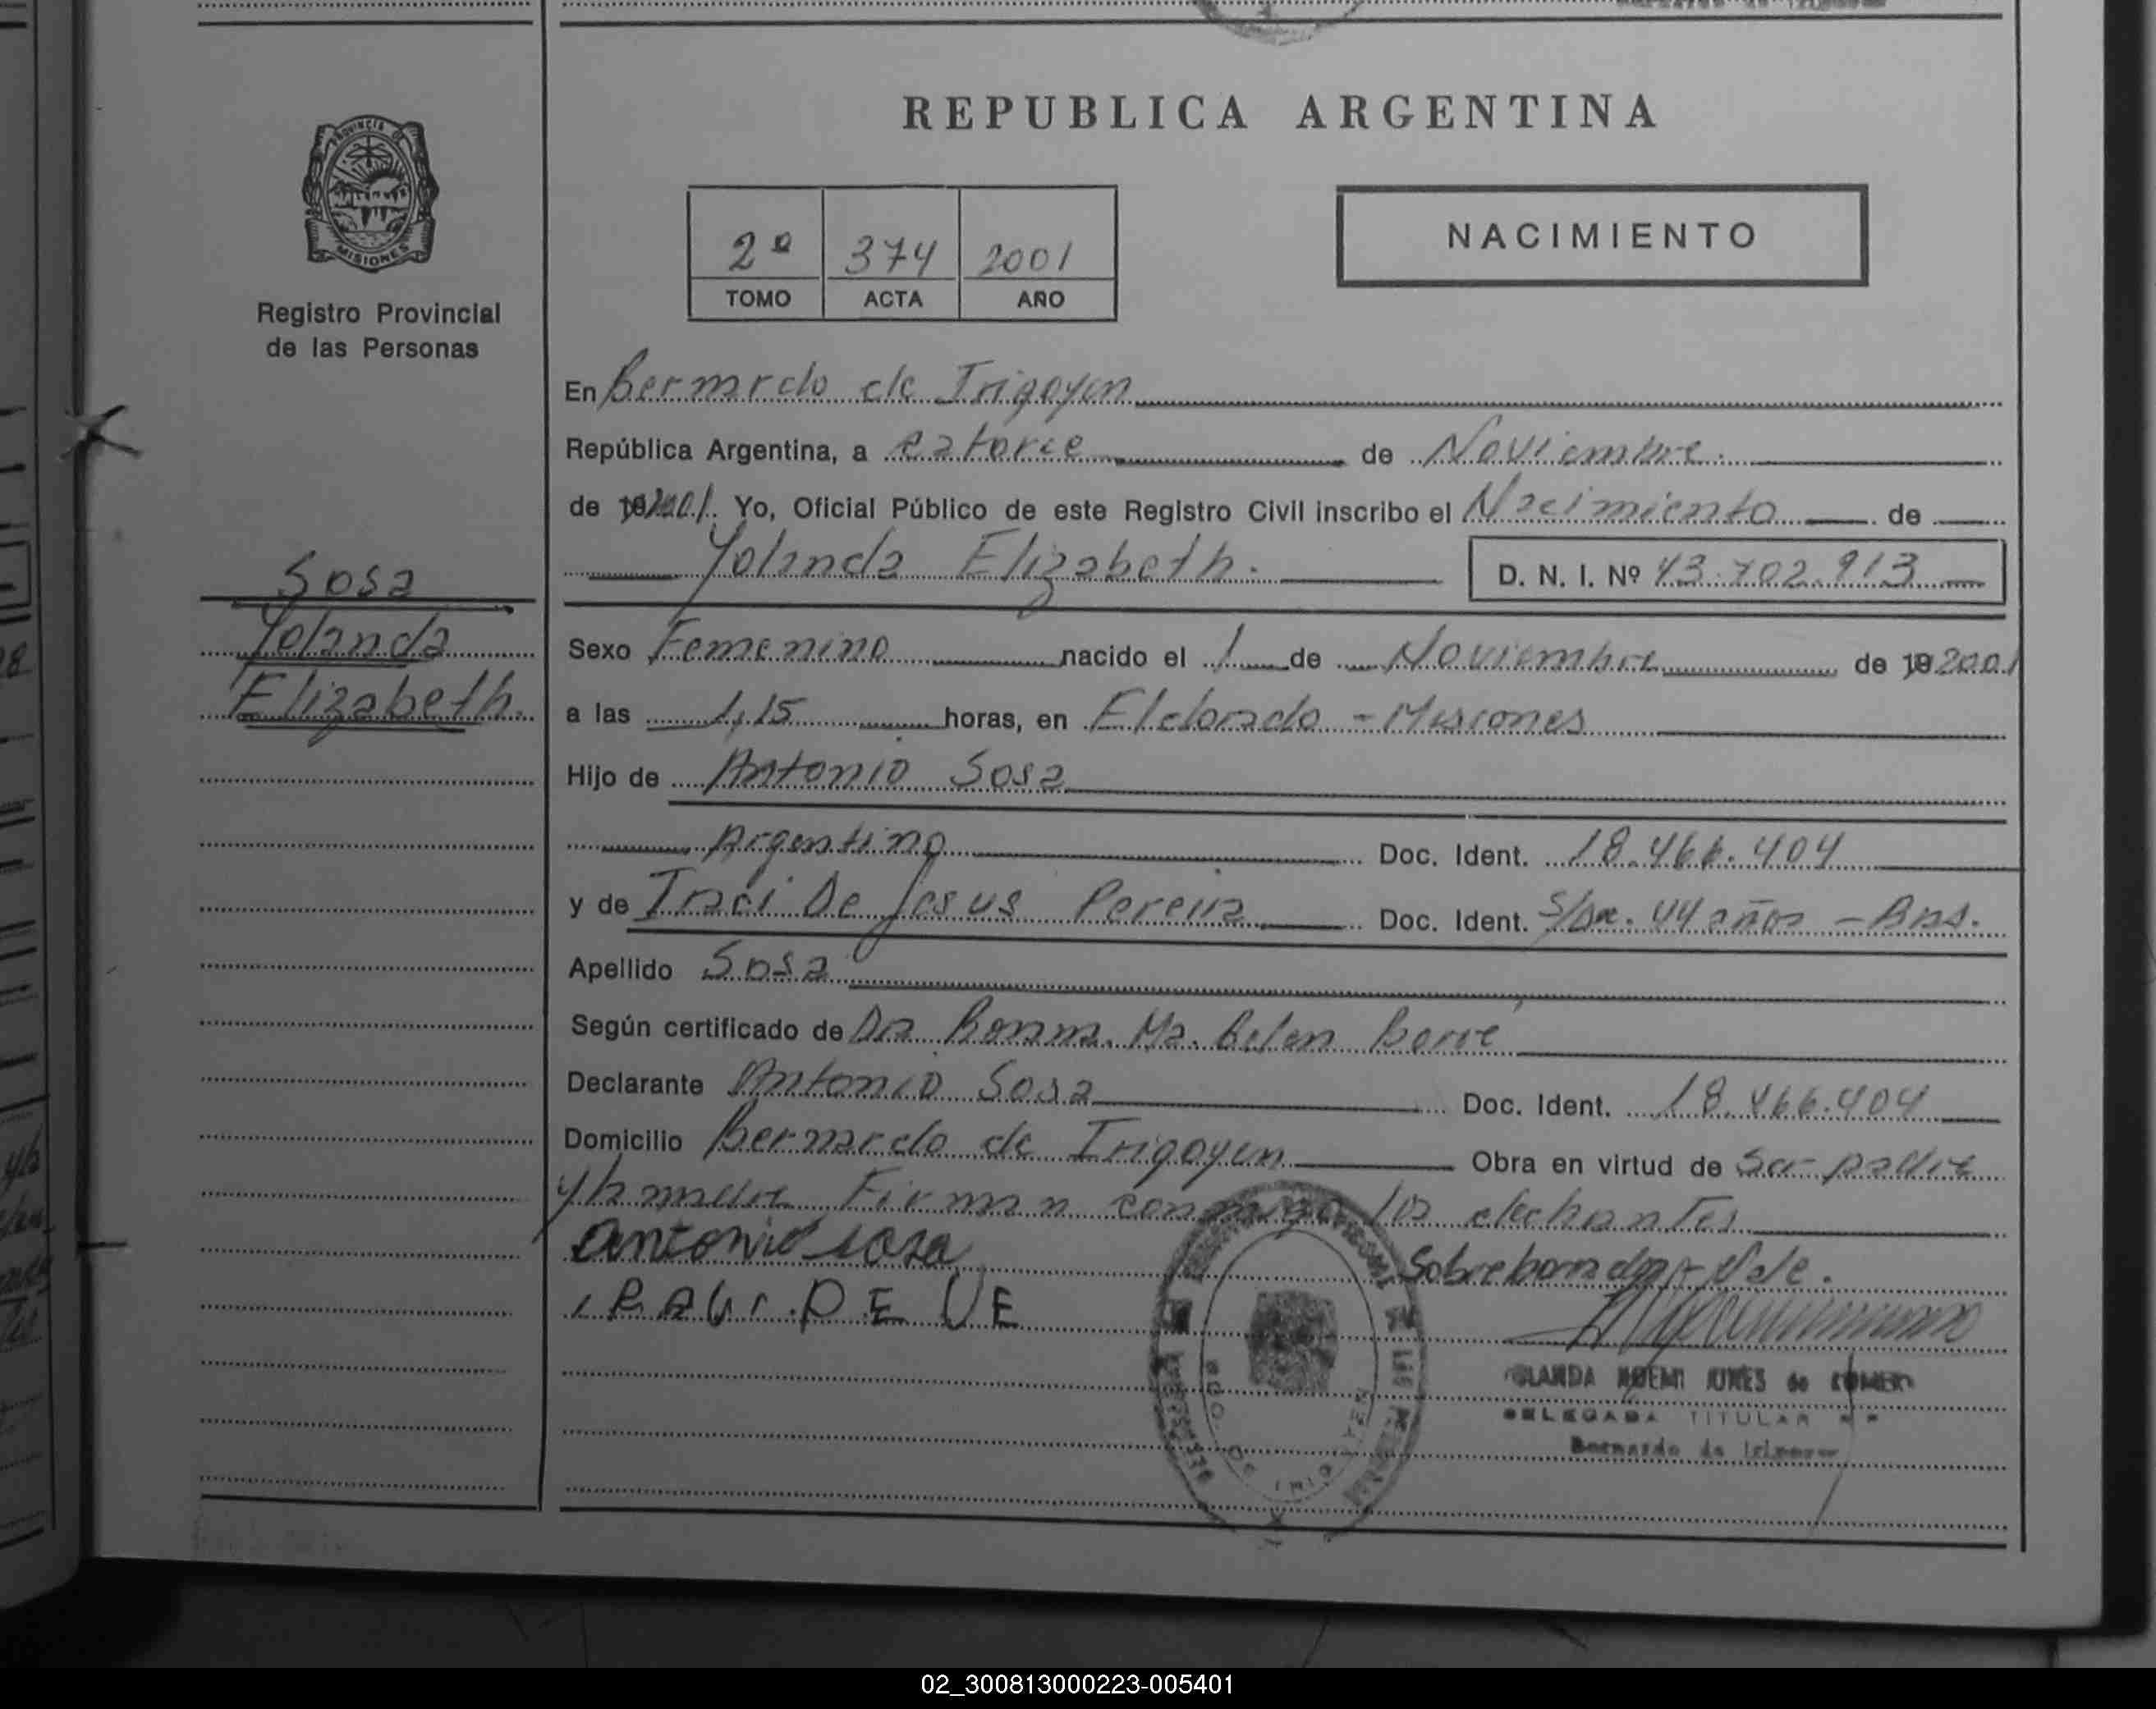 REPUBLICA ARGENTINA
PROVINCIA DE
MISIONES
Registro Provincial
de las Personas
2º 374 2001
TOMO ACTA AÑO
NACIMIENTO
En Bernardo de Irigoyen
República Argentina, a catorce de Noviembre
de 19 2001. Yo, Oficial Público de este Registro Civil inscribo el Nacimiento de
Yolanda Elizabeth.
D. N. I. Nº 43.702.913
Sosa
Yolanda
Elizabeth.
Sexo Femenino nacido el 1 de Noviembre de 19 2001
a las 1,15 horas, en Eldorado - Misiones
Hijo de Antonio Sosa
Argentino Doc. Ident. 18.466.404
y de Iraci De Jesus Pereira Doc. Ident. 44 años - Bras.
Apellido Sosa
Según certificado de Dra. Ma. Belen
Declarante Antonio Sosa Doc. Ident. 18.466.404
Domicilio Bernardo de Irigoyen Obra en virtud de Ser padre
y la madre Firman conmigo los
Antonio sosa Sobreborrado Vale.
IRACI DE
DELEGADA TITULAR
Bernardo de Irigoyen
02_300813000223-005401